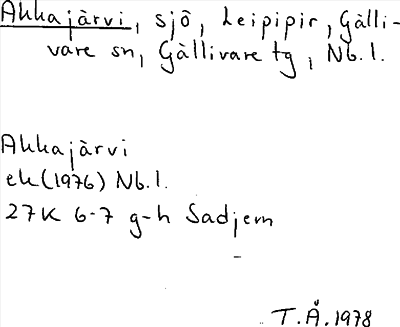 Ahkajärvi, sjö, Leipipir, Gälli-
vare sn, Gällivare tg, Nb.l.
Ahkajärvi
ek (1976) Nb.l.
27K 6-7 g-h Sadjem
T.Å. 1978